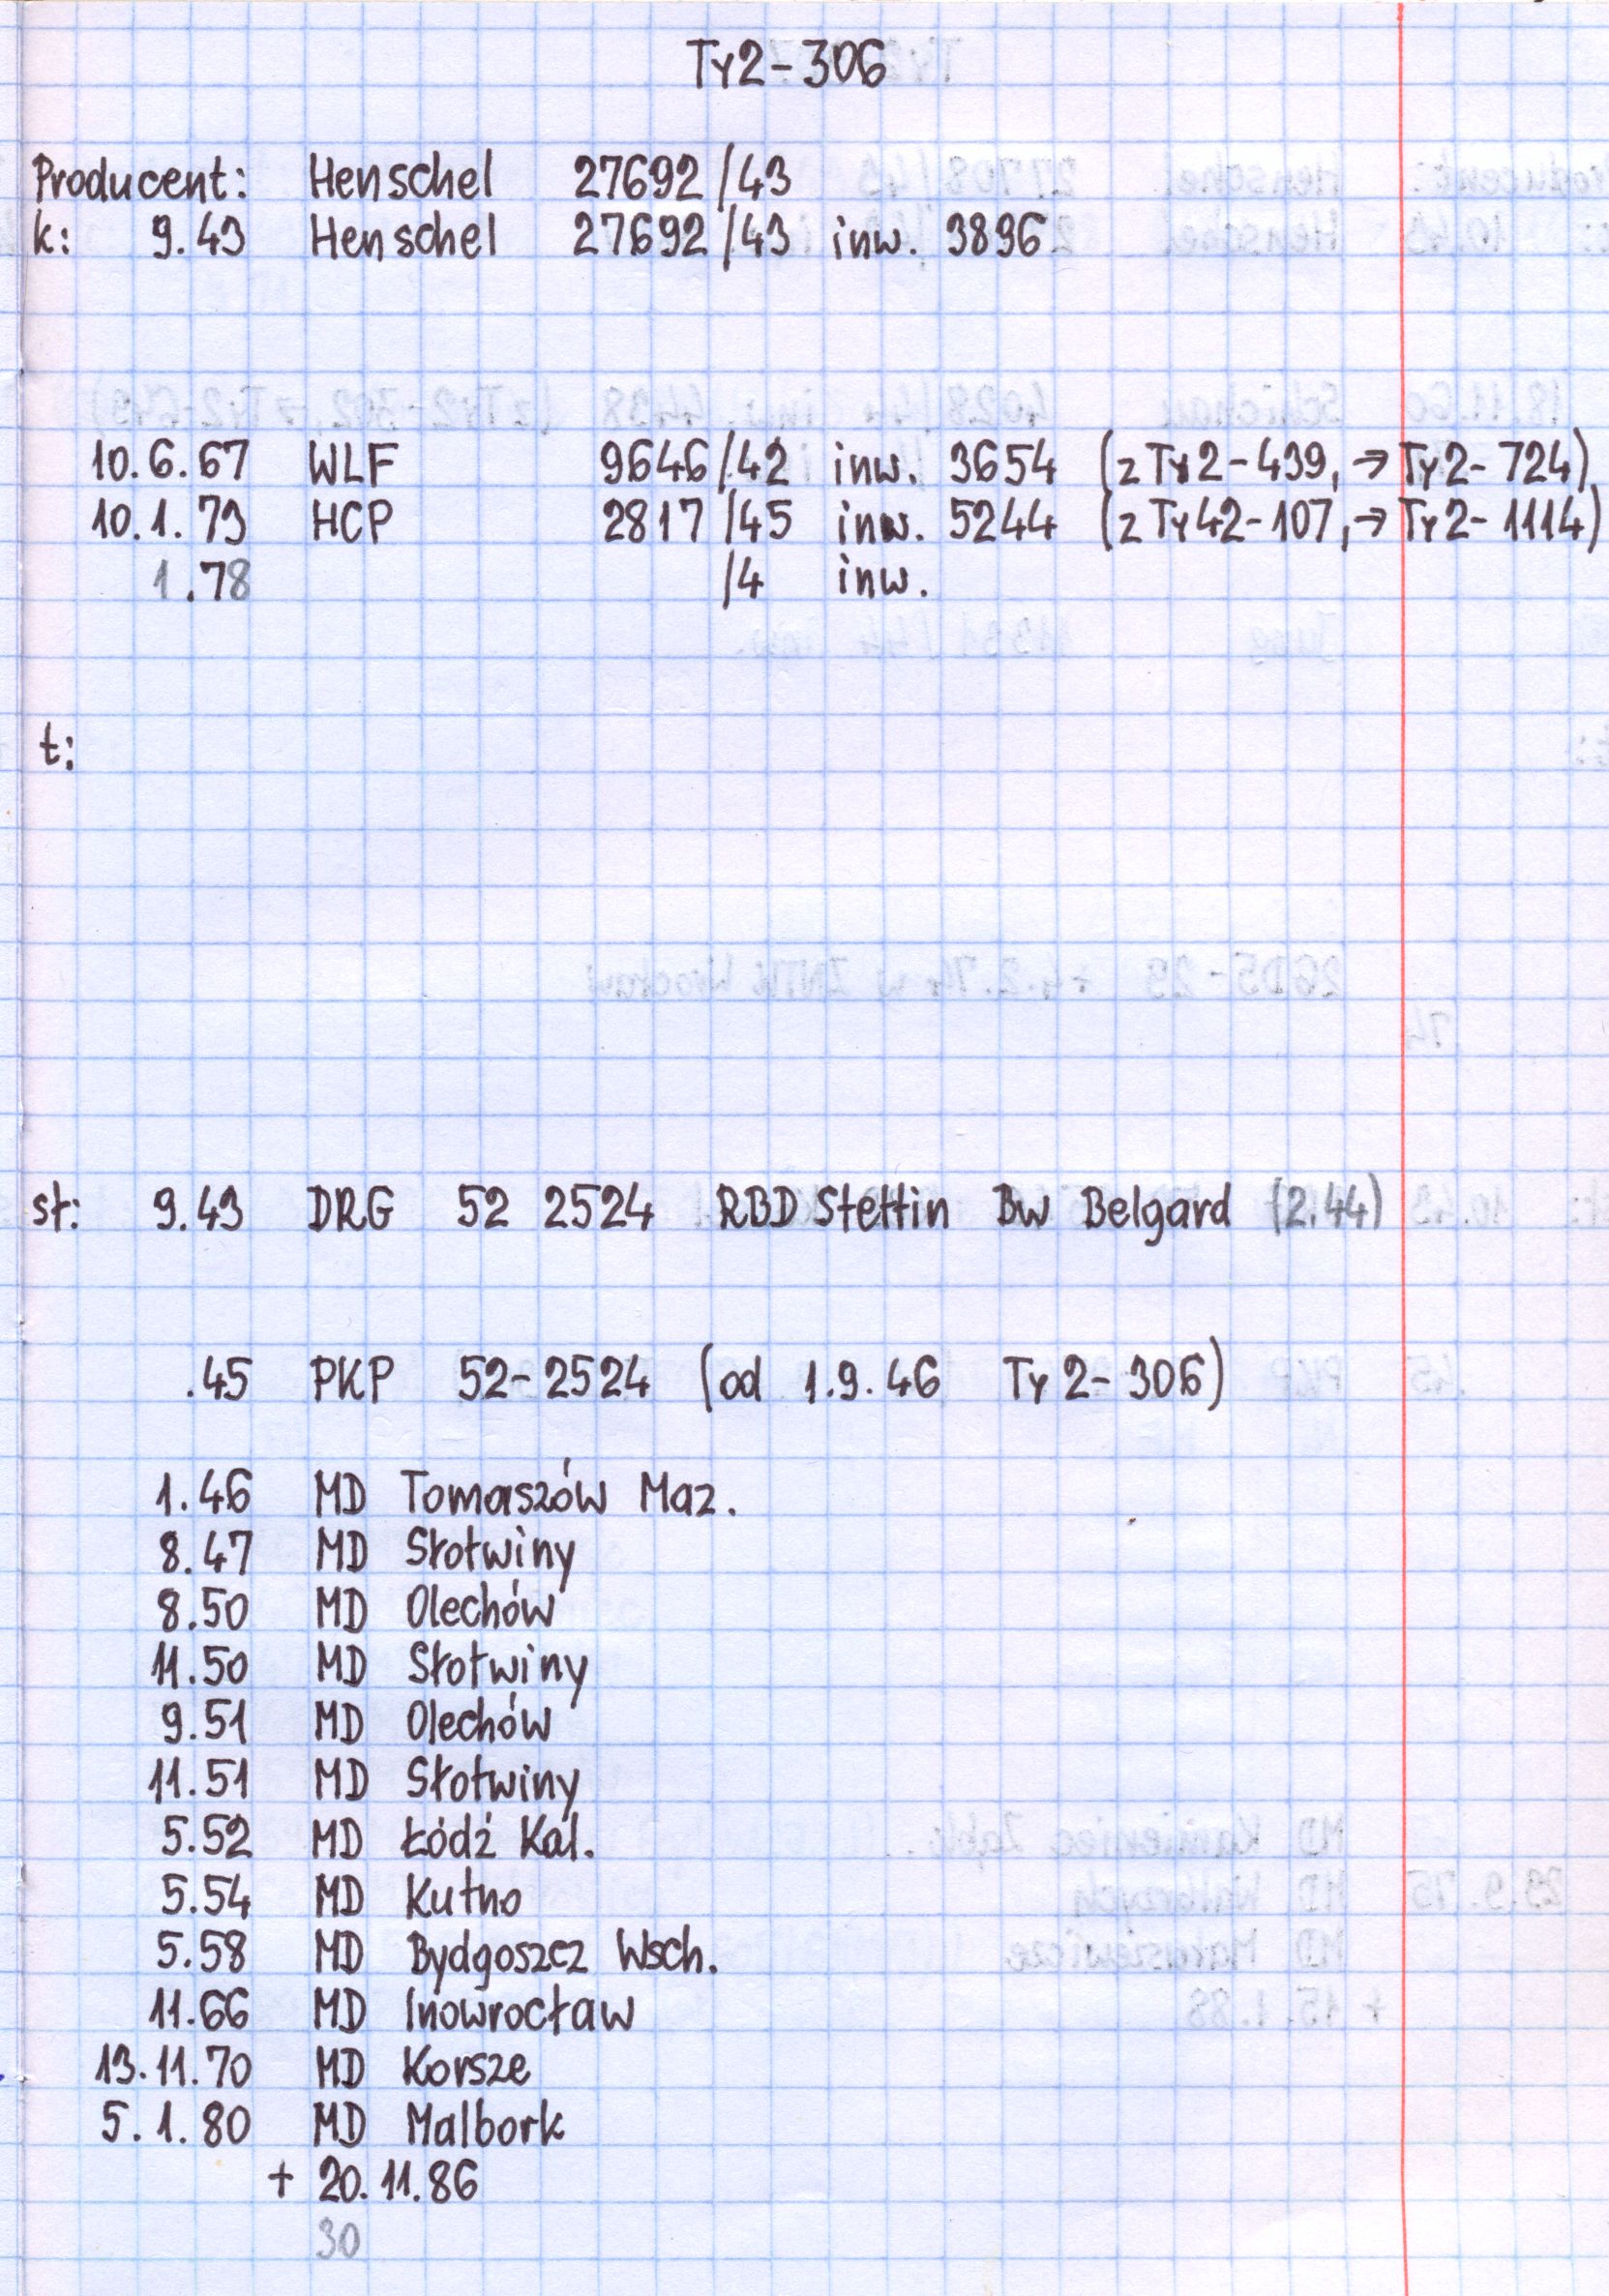 Ty2-306
Producent: Henschel 27692/43
k: 9.43 Henschel 27692/43 inw. 3896
10.6.67 WLF 9646/42 inw. 3654 (z Ty2-439, → Ty2-724)
10.1.73 HCP 2817/45 inw. 5244 (z Ty42-107, → Ty2-1114)
1.78 /4 inw.
t:
st: 9.43 DRG 52 2524 RBD Stettin Bw Belgard (2.44)
.45 PKP 52-2524 (od 1.9.46 Ty2-306)
1.46 MD Tomaszów Maz.
8.47 MD Słotwiny
8.50 MD Olechów
11.50 MD Słotwiny
9.51 MD Olechów
11.51 MD Słotwiny
5.52 MD Łódź Kal.
5.54 MD Kutno
5.58 MD Bydgoszcz Wsch.
11.66 MD Inowrocław
13.11.70 MD Korsze
5.1.80 MD Malbork
+ 20.11.86
30